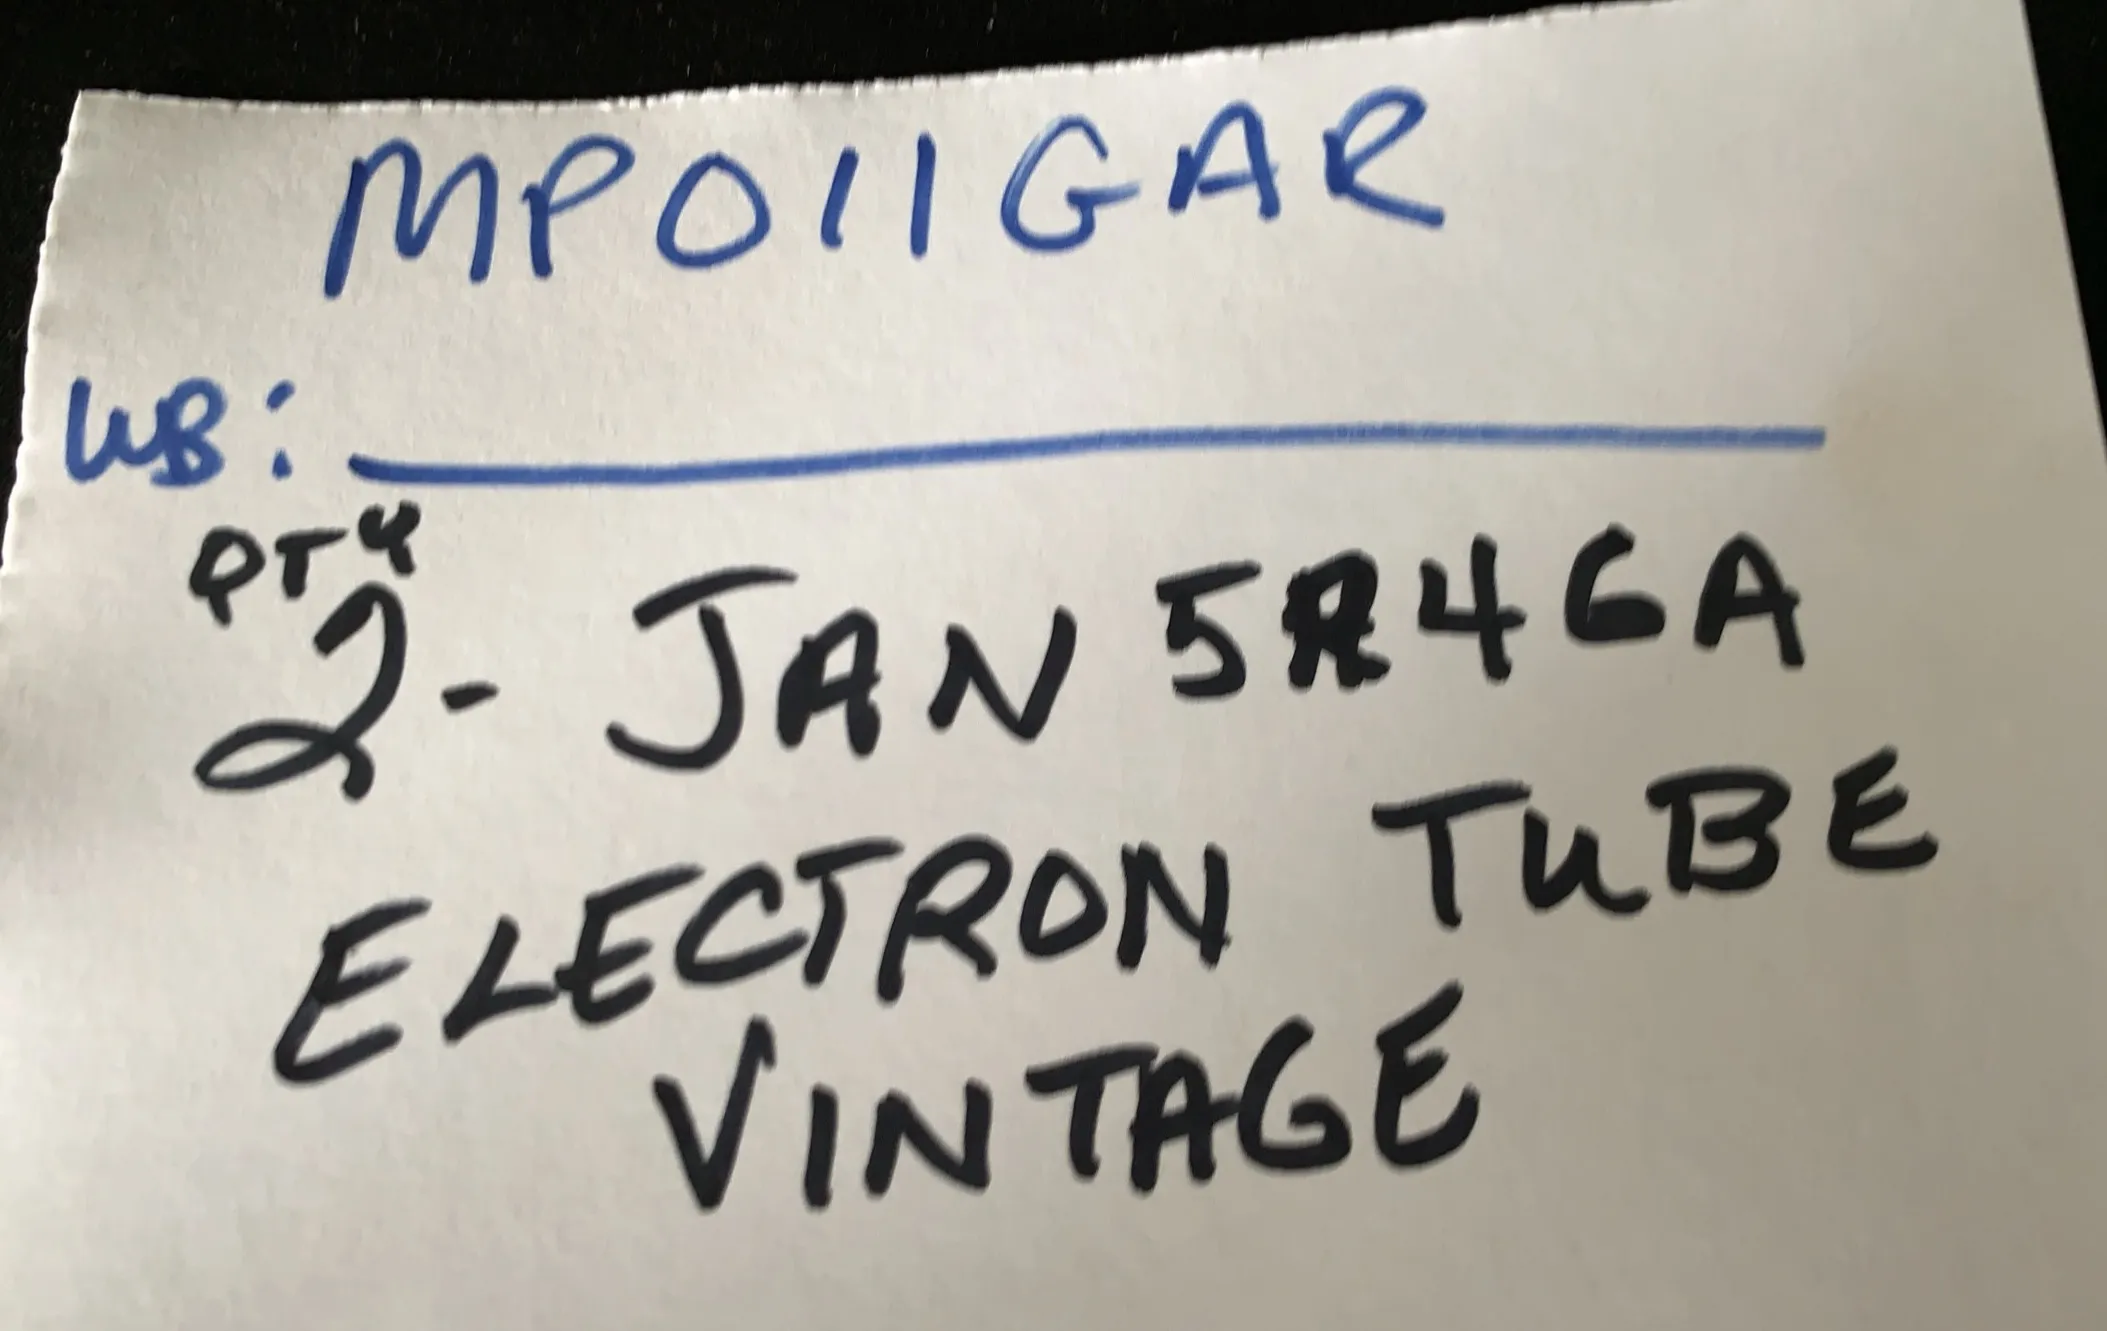 MP011GAR
WB:
QTY
2- JAN 5R4GA
ELECTRON TUBE
VINTAGE